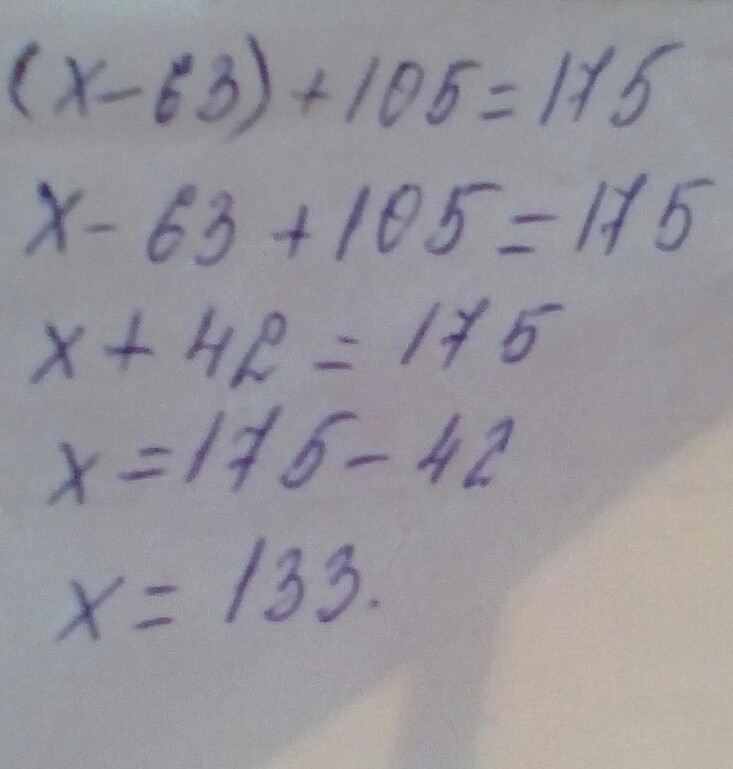 (x-63)+105=175
x-63+105=175
x+42=175
x=175-42
x=133.